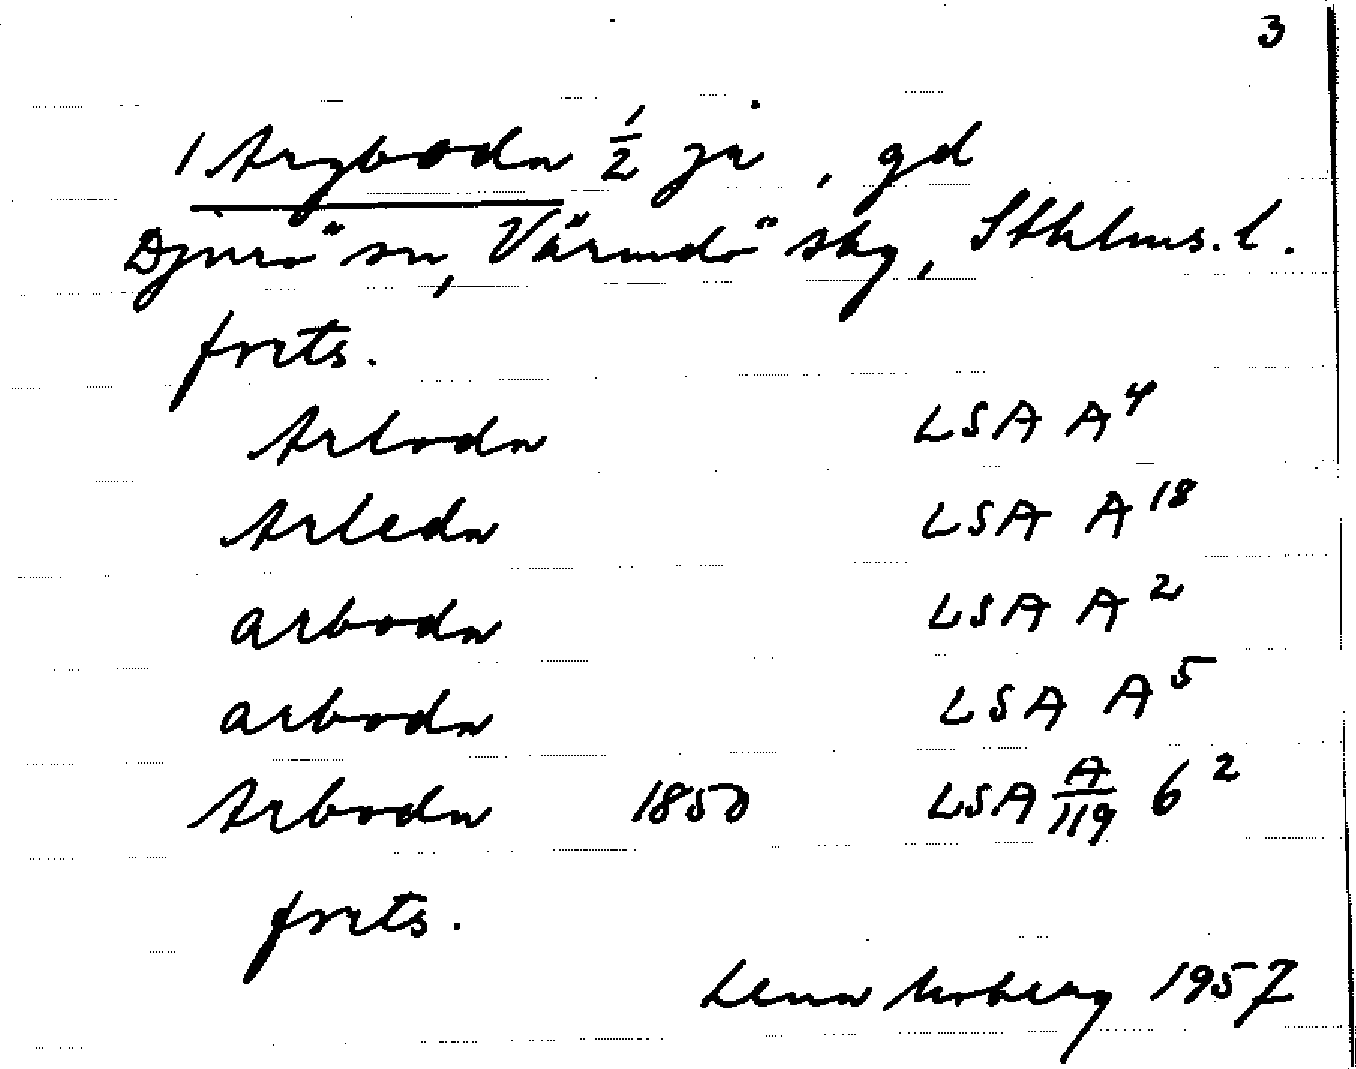 3
1 Argboda 1/2 ja, gd
Djurö sn, Värmdö skg, Sthlms. l.
forts.
Arboda LSA A4
Arleda LSA A18
arboda LSA A2
arboda LSA A5
Arboda 1850 LSA A/119 6 2
forts.
Lena Moberg 1957